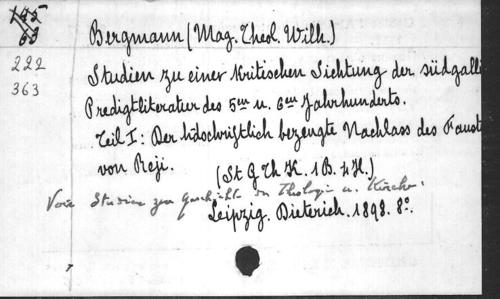 145
63
Bergmann (Mag. Theol. Wilh.)
222
Studien zu einer kritischen Sichtung der südgalli
363
Predigtliteratur des 5en u. 6en Jahrhunderts.
Teil I: Der hdschriftlich bezeugte Nachlass des Faust
von Reji.
(St G Th K. 1 B. 4 H.)
Studien zur Geschichte der Theologie u. Kirche.
Leipzig. Dieterich. 1898. 8°.